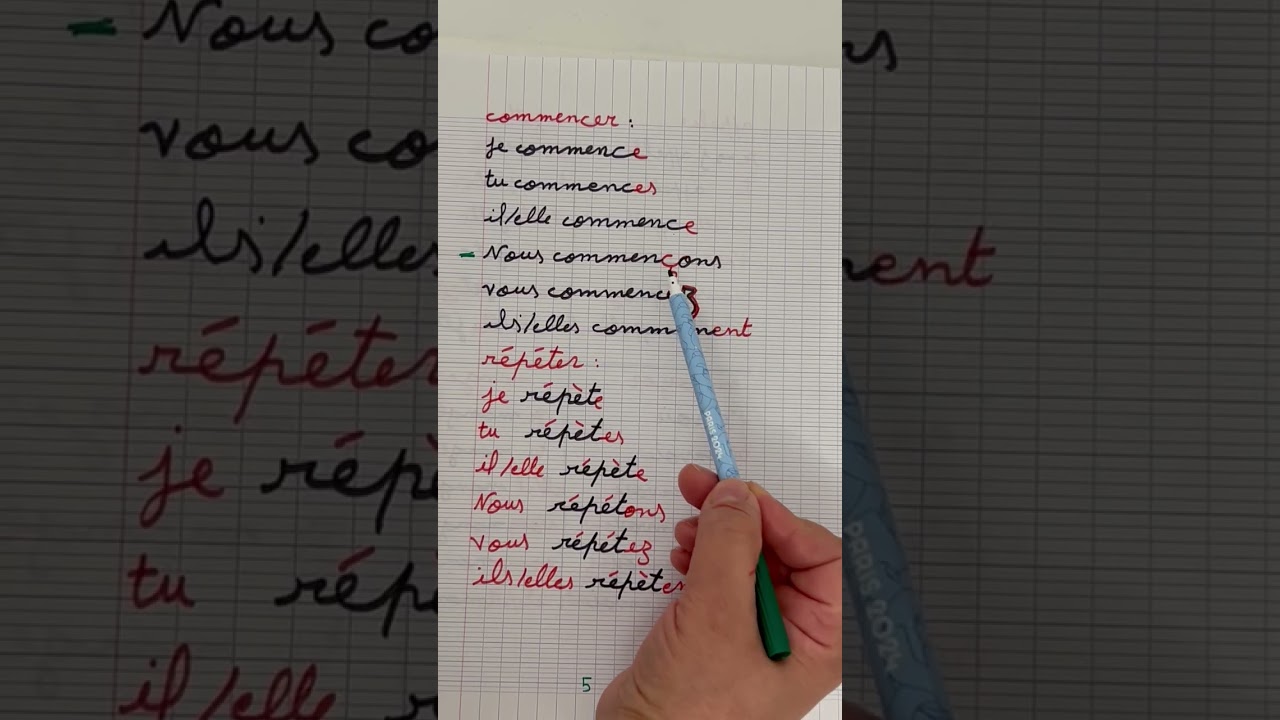 commencer :
je commence
tu commences
il/elle commence
- Nous commençons
vous commencez
ils/elles commencent
répéter :
je répète
tu répètes
il/elle répète
Nous répétons
vous répétez
ils/elles
PARIS 2024
5